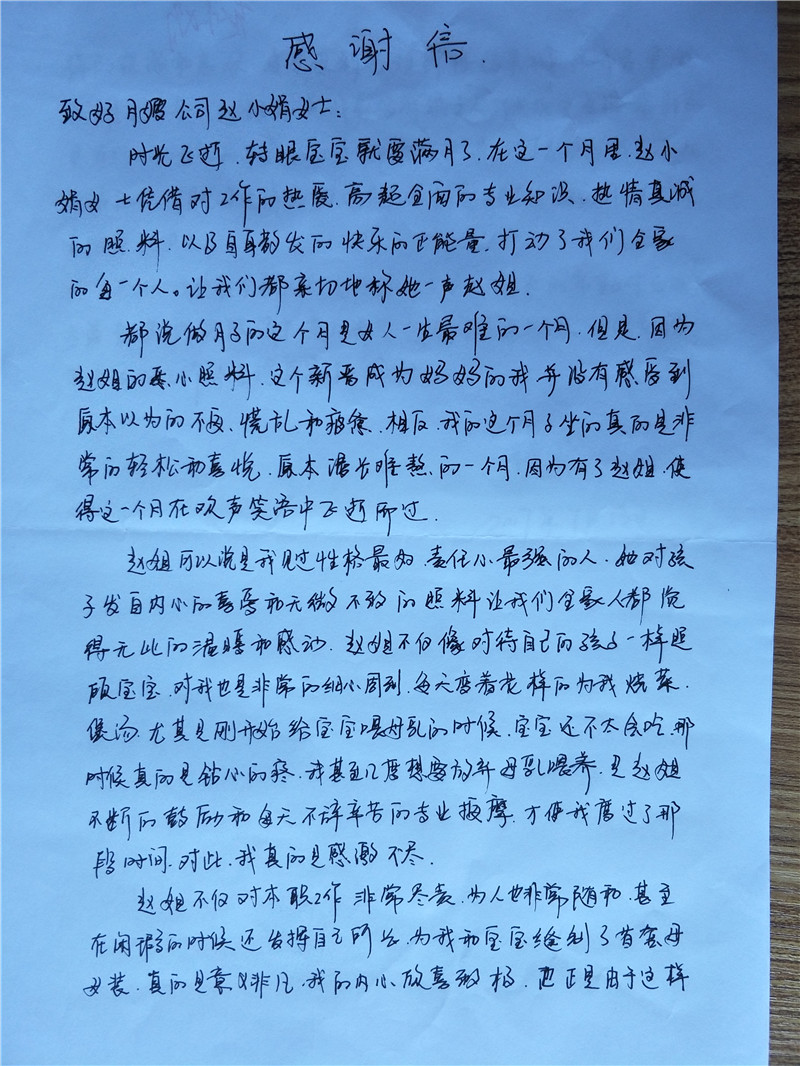 感谢信.
致好月嫂公司赵小娟女士:
时光飞逝、转眼宝宝就要满月了、在这一个月里、赵小
娟女士凭借对工作的热爱、高超全面的专业知识、热情真诚
的照料、以及自身散发的快乐的正能量、打动了我们全家
的每一个人。让我们都亲切地称她一声赵姐.
都说做月子的这个月是女人一生最难的一个月、但是、因为
赵姐的悉心照料、这个新晋成为妈妈的我并没有感受到
原本以为的不安、慌乱和疲惫、相反、我的这个月子坐的真的是非
常的轻松和喜悦、原本漫长难熬的一个月、因为有了赵姐、使
得这一个月在欢声笑语中飞逝而过.
赵姐可以说是我见过性格最好、责任心最强的人、她对孩
子发自内心的喜爱和无微不致的照料让我们全家人都觉
得无比的温暖和感动、赵姐不仅像对待自己的孩子一样照
顾宝宝、对我也是非常的细心周到、每天变着花样的为我烧菜、
煲汤、尤其是刚开始给宝宝喂母乳的时候、宝宝还不太会吃、那
时候真的是钻心的疼、我甚至几度想要放弃母乳喂养、是赵姐
不断的鼓励和每天不辞辛苦的专业按摩、才使我度过了那
段时间、对此、我真的是感激不尽.
赵姐不仅对本职工作非常尽责、为人也非常随和、甚至
在闲暇的时候还发挥自己所长、为我和宝宝缝制了首套母
女装、真的是意义非凡、我的内心欣喜致极、也正是由于这样